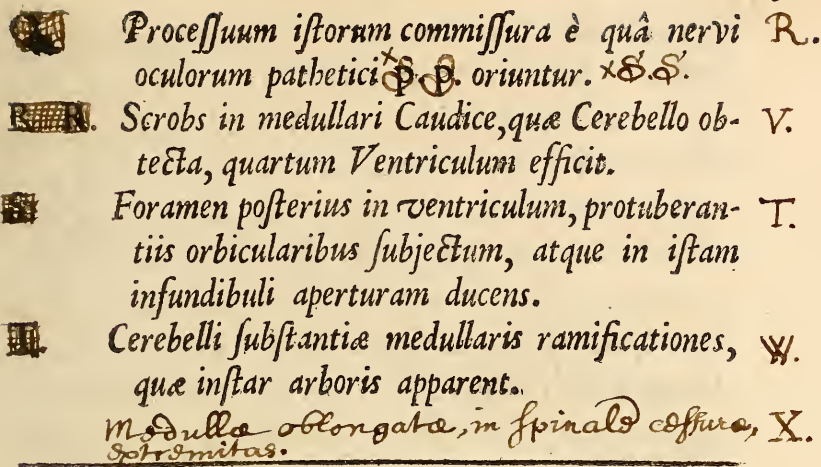 Q. Proceſſuum iſtorum commiſſura è quâ nervi R.
oculorum pathetici p. p. oriuntur. ×S.S.
R R. Scrobs in medullari Caudice, quæ Cerebello ob- V.
tecta, quartum Ventriculum efficit.
S. Foramen poſterius in ventriculum, protuberan- T.
tiis orbicularibus ſubjectum, atque in iſtam
infundibuli aperturam ducens.
T. Cerebelli ſubſtantiæ medullaris ramificationes, W.
quæ inſtar arboris apparent.
Medullæ oblongatæ, in ſpinale ceſſuræ, X.
extremitas.